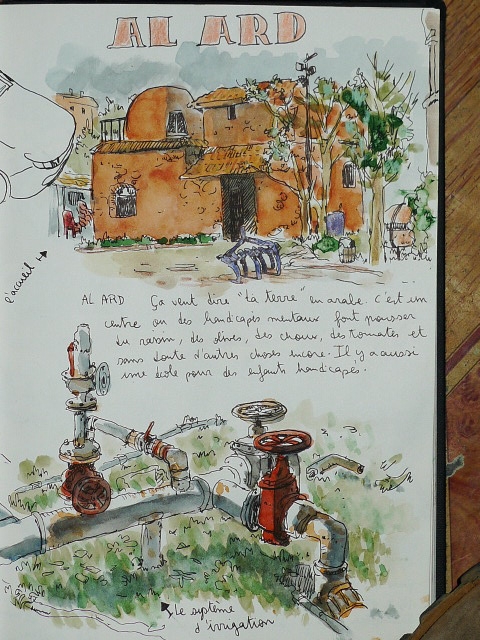 AL ARD
l'accueil
AL ARD Ça veut dire "La terre" en arabe. C'est un
centre ou des handicapés mentaux font pousser
du raisin, des olives, des choux, des tomates et
sans doute d'autres choses encore. Il y a aussi
une école pour des enfants handicapés.
Le système
d'irrigation